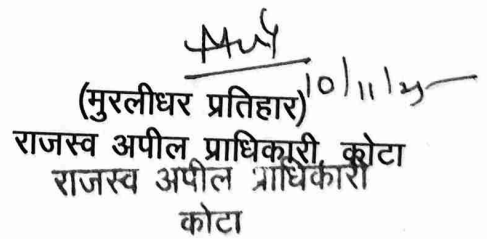 10/11/25
(मुरलीधर प्रतिहार)
राजस्व अपील प्राधिकारी, कोटा
राजस्व अपील प्राधिकारी
कोटा